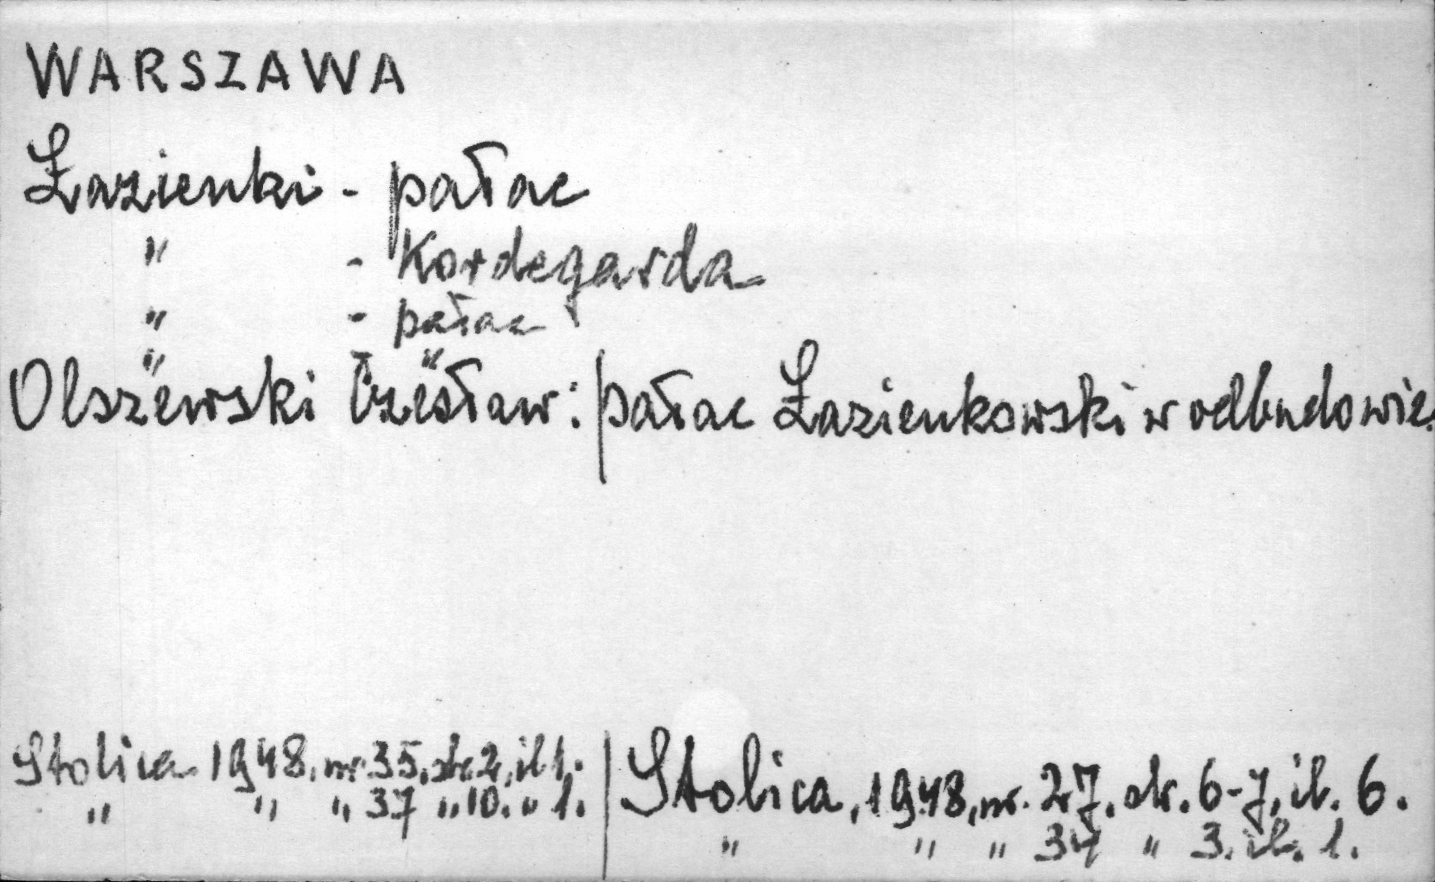 WARSZAWA
Łazienki - pałac
" - Kordegarda
" - pałac
" "
Olszewski Czesław: pałac Łazienkowski w odbudowie.
Stolica 1948, nr. 35, str. 2, il. 1. | Stolica, 1948, nr. 27. str. 6-7, il. 6.
" " " 37 " 10. " 1. | " " " 34 " 3. il. 1.